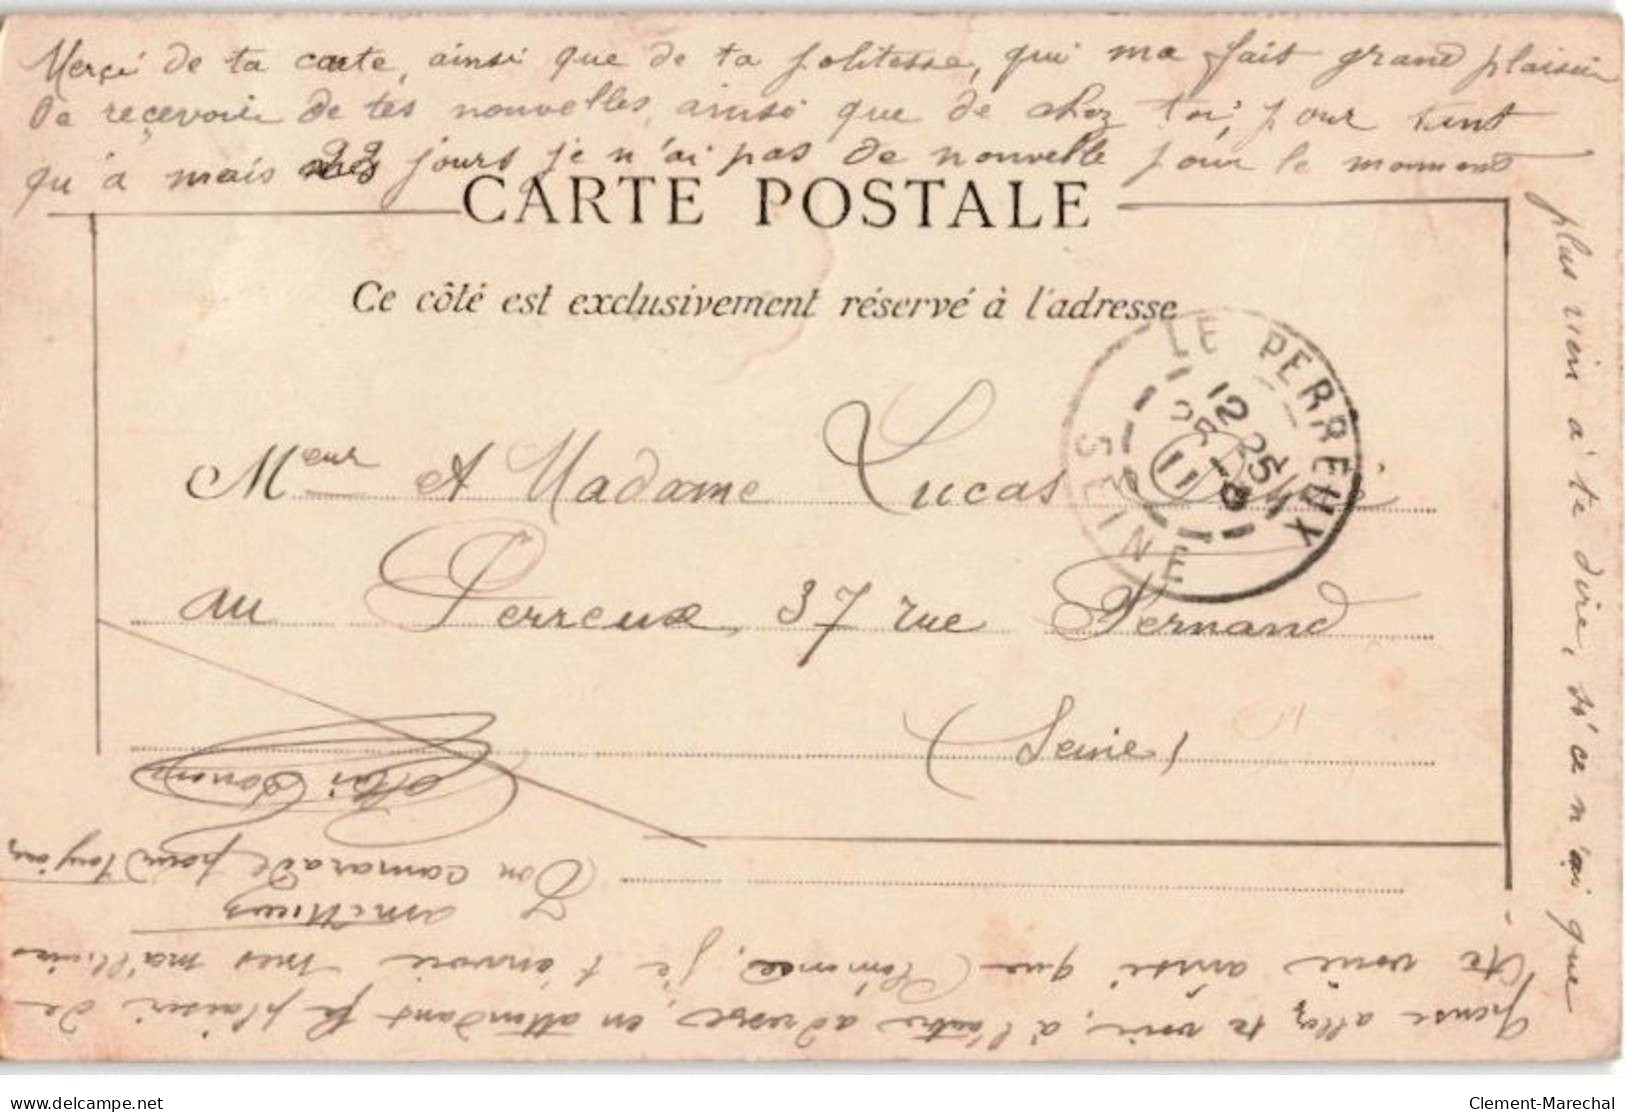 Merçi de ta carte, ainsi que de ta politesse, qui ma fait grand plaisir
De reçevoir de tes nouvelles, ainsi que de chez toi, pour tant
qu'à mais 22 jours je n'ai pas de nouvelle pour le moment
plus rien a' te dire, si ce n'ai que
CARTE POSTALE
Ce côté est exclusivement réservé à l'adresse
LE PERREUX
SEINE
12 25
11
Meur et Madame Lucas
au Perreux, 37 rue Fernand
(Seine)
pense allez te voir, a' l'autre adresse, en attendant le plaisir de
te voir ainsi que je t'envoie mes meilleures
amitiées
Ton camarade pour toujours
delcampe.net
Clement-Marechal